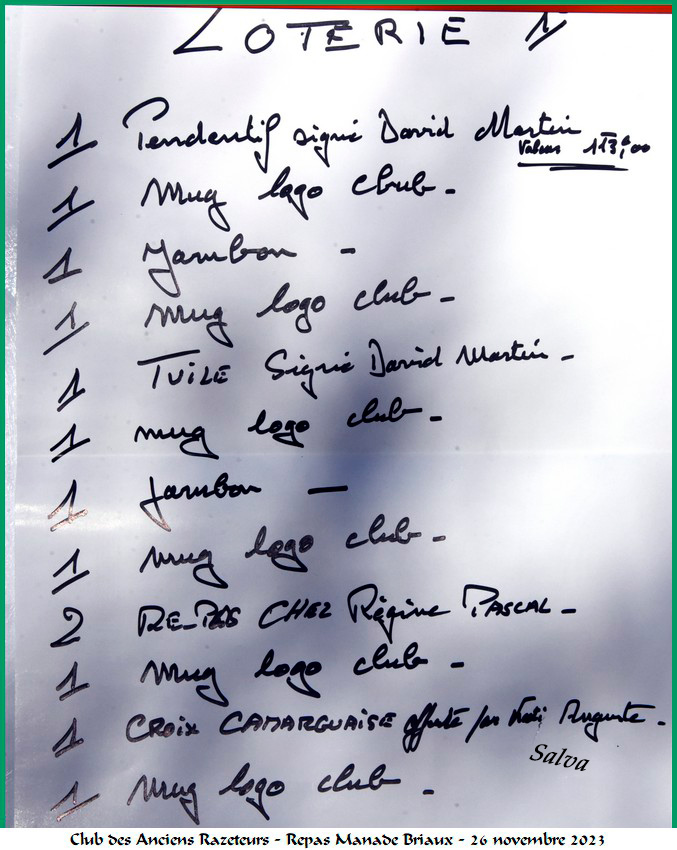 LOTERIE 1
1 Pendentif signé David Martin
Valeur 113,00
1 Mug logo club -
1 Jambon -
1 Mug logo club -
1 TUILE Signé David Martin -
1 mug logo club -
1 jambon -
1 mug logo club -
2 REPAS CHEZ Régine PASCAL -
1 Mug logo club -
1 CROIX CAMARGUAISE offerte par Auguste -
1 Mug logo club -
Salva
Club des Anciens Razeteurs - Repas Manade Briaux - 26 novembre 2023